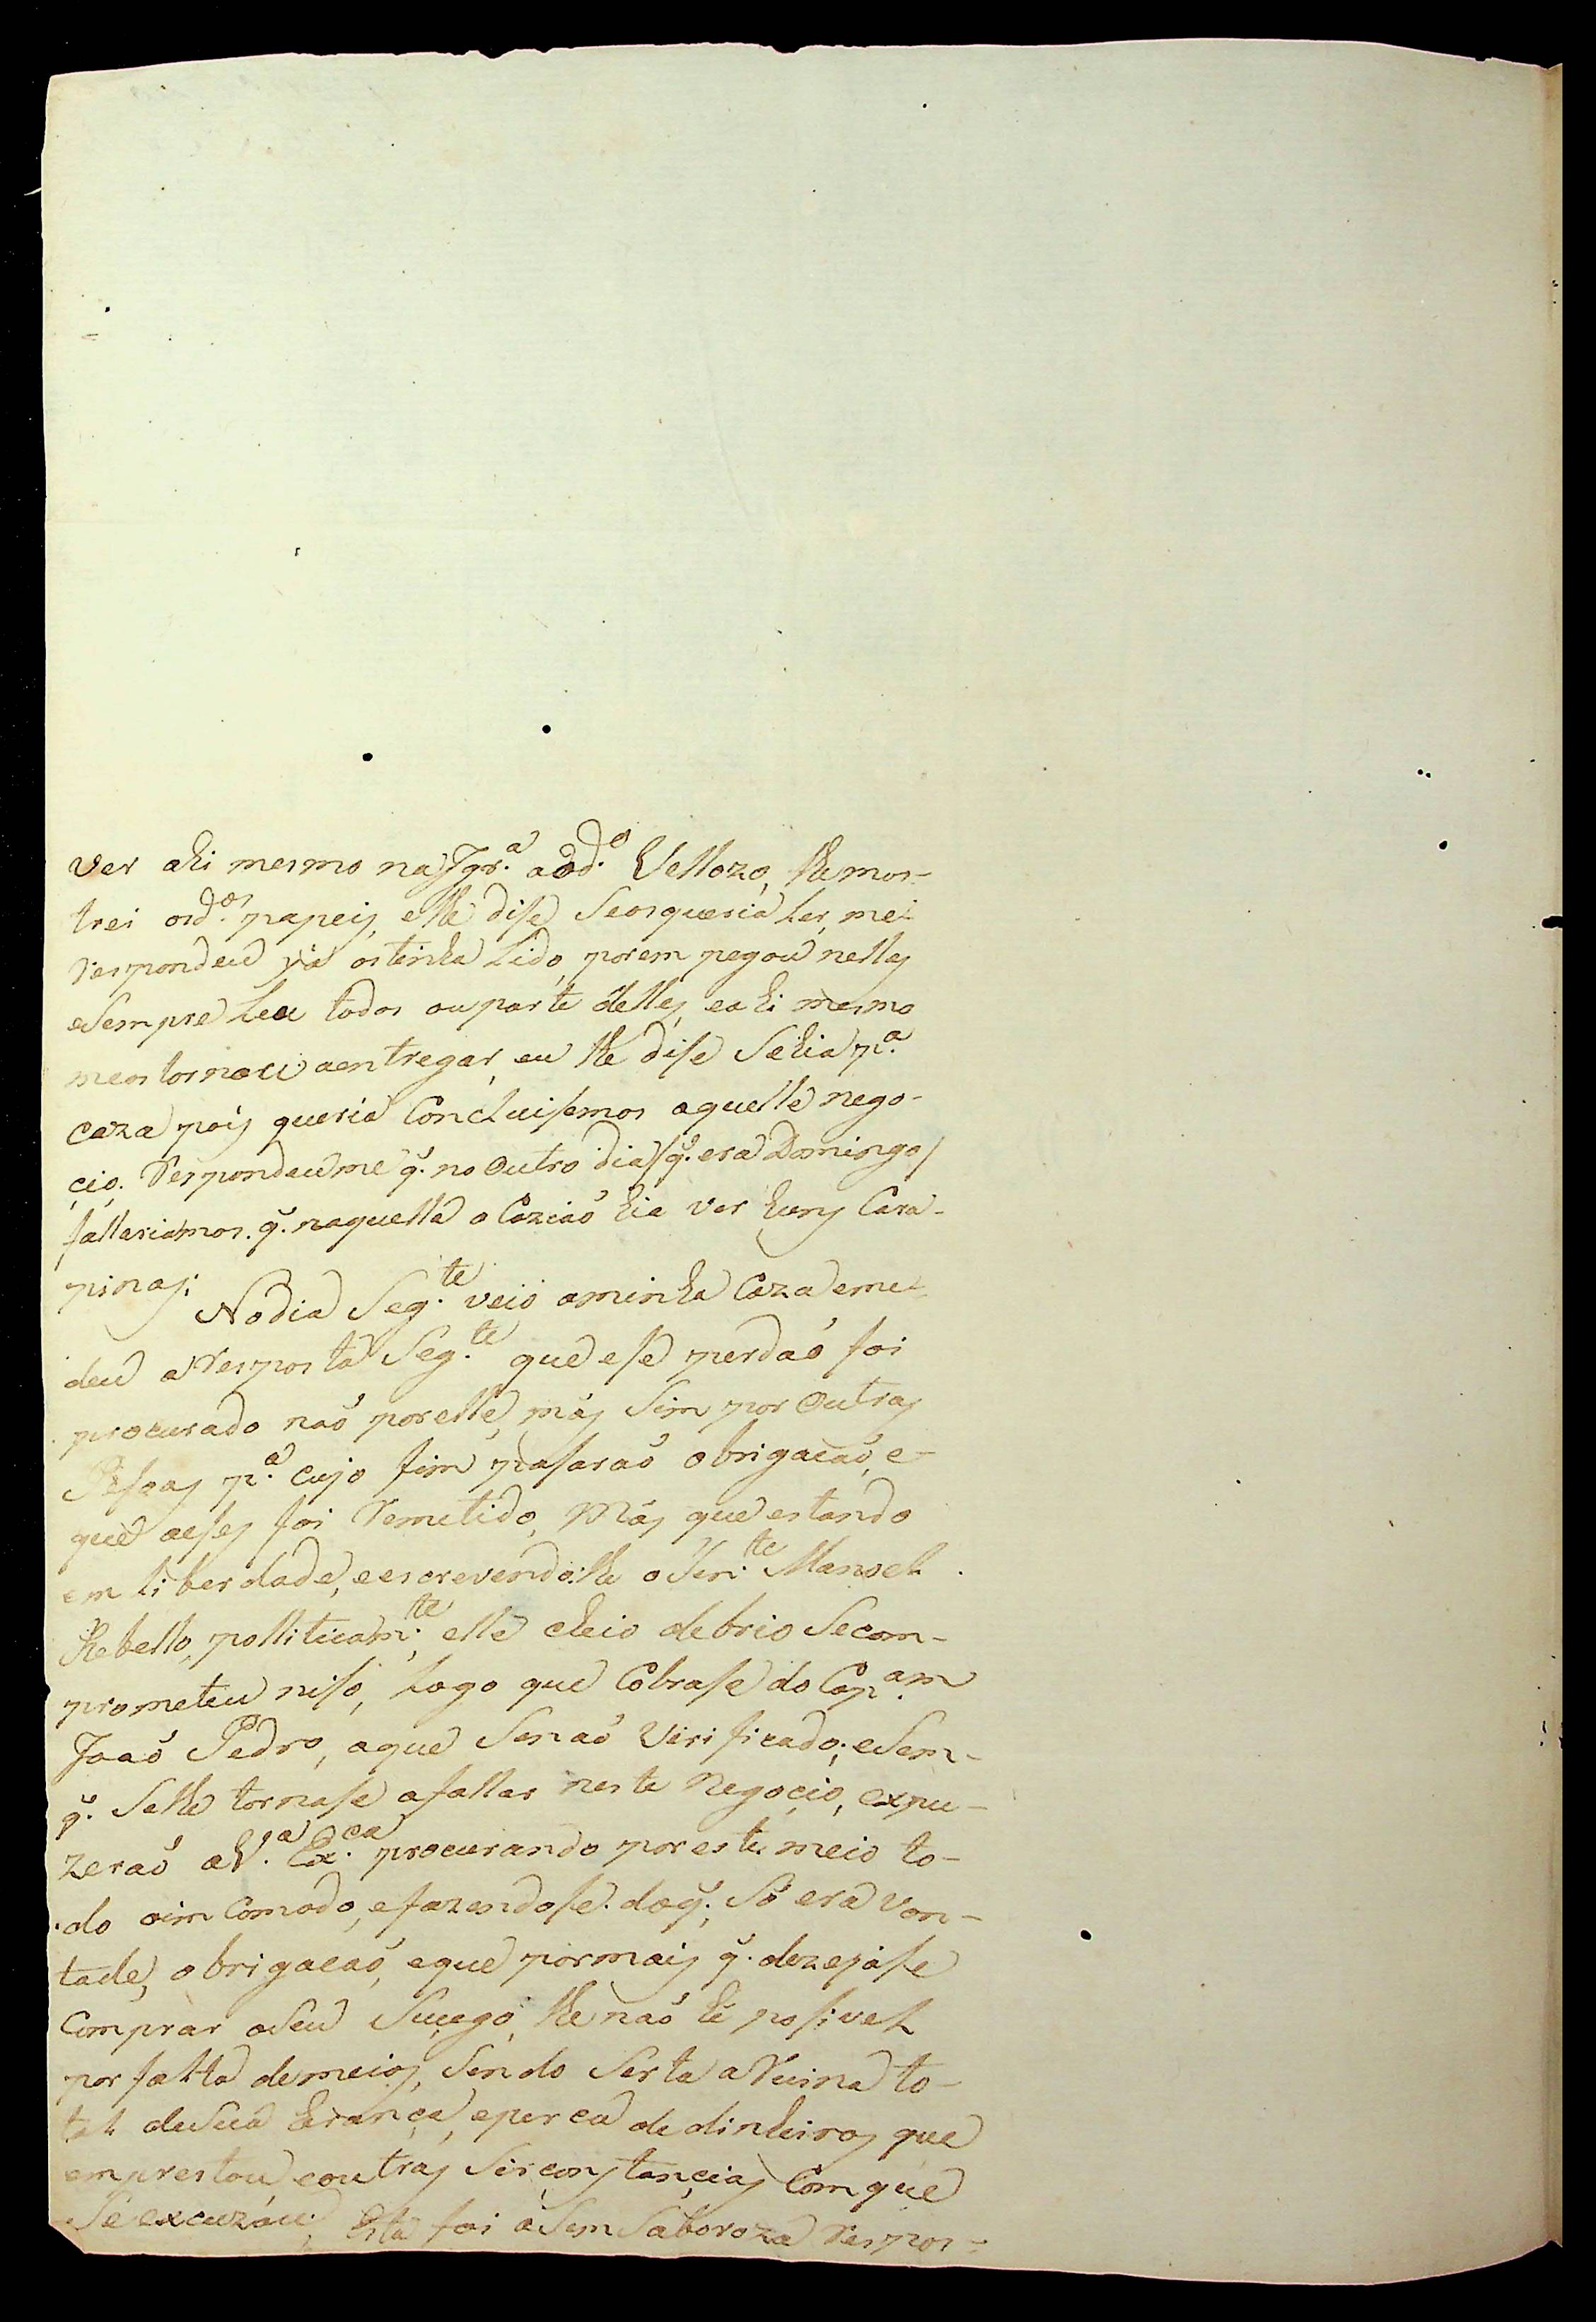 ver ahi mesmo na Igr.ª ao d.º Vellozo, lhe mos-
trei os d.ºs papeis, e lhe dise Se os queria Ler, me
respondeu já os tinha Lido, porem pegou nelles
e Sempre Leu todos ou parte delles, e ahi mesmo
meos tornou a entregar, eu lhe dise Se hia p.ª
caza pois queria Concluisemos aquelle nego-
cio. Respondeume q̃. no outro dia /q̃. era Domingo/
fallariamos. q̃. naquella o Caziaó hia ver huns Cara-
pinas;
No dia Seg.te veio a minha Caza e me
deu a resposta Seg.te que ese perdaó foi
procurado naó por elle, más Sim por outras
Pesoas p.ª cujo fim pasaraó obrigacaó, e
que a eses foi remetido, Más que estando
em liberdade, e escrevendo:lhe o Ten.te Manoel
Rebello, polliticam.te, elle cheio de brio Se com-
prometeu niso, Logo que Cobrase do Cap.am
Joaó Pedro, a que Se naó Virificado; e Sem
q̃. Selhe tornase a fallar neste Negocio, expu-
zeraó a V.ª Ex.ca procurando por este meio to-
do o im Comodo, e fazendose. do q̃. Só era von-
tade, obrigacaó, e que por mais q̃. dezejase
Comprar o Seu Sucego, lhe naó hé posivel
por falta de meios, Sendo Serta a Ruina to-
tal de Sua herança, e perca de dinheiros que
emprestou e outras Sirconstancias Com que
Se excuzou; Esta foi a Sem Saboroza respos-